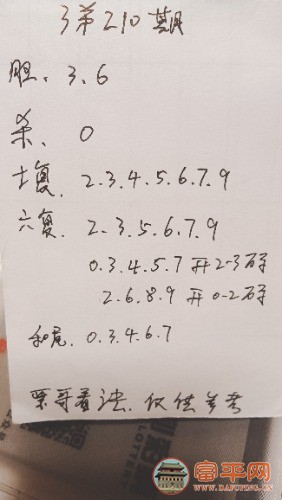 3第210期
胆、3.6
杀、0
七复. 2.3.4.5.6.7.9
六复. 2.3.5.6.7.9
0.3.4.5.7开2-3码
2.6.8.9开0-2码
和尾. 0.3.4.6.7
栗哥看法.仅供参考
富平网
WWW.DAFUPING.CN